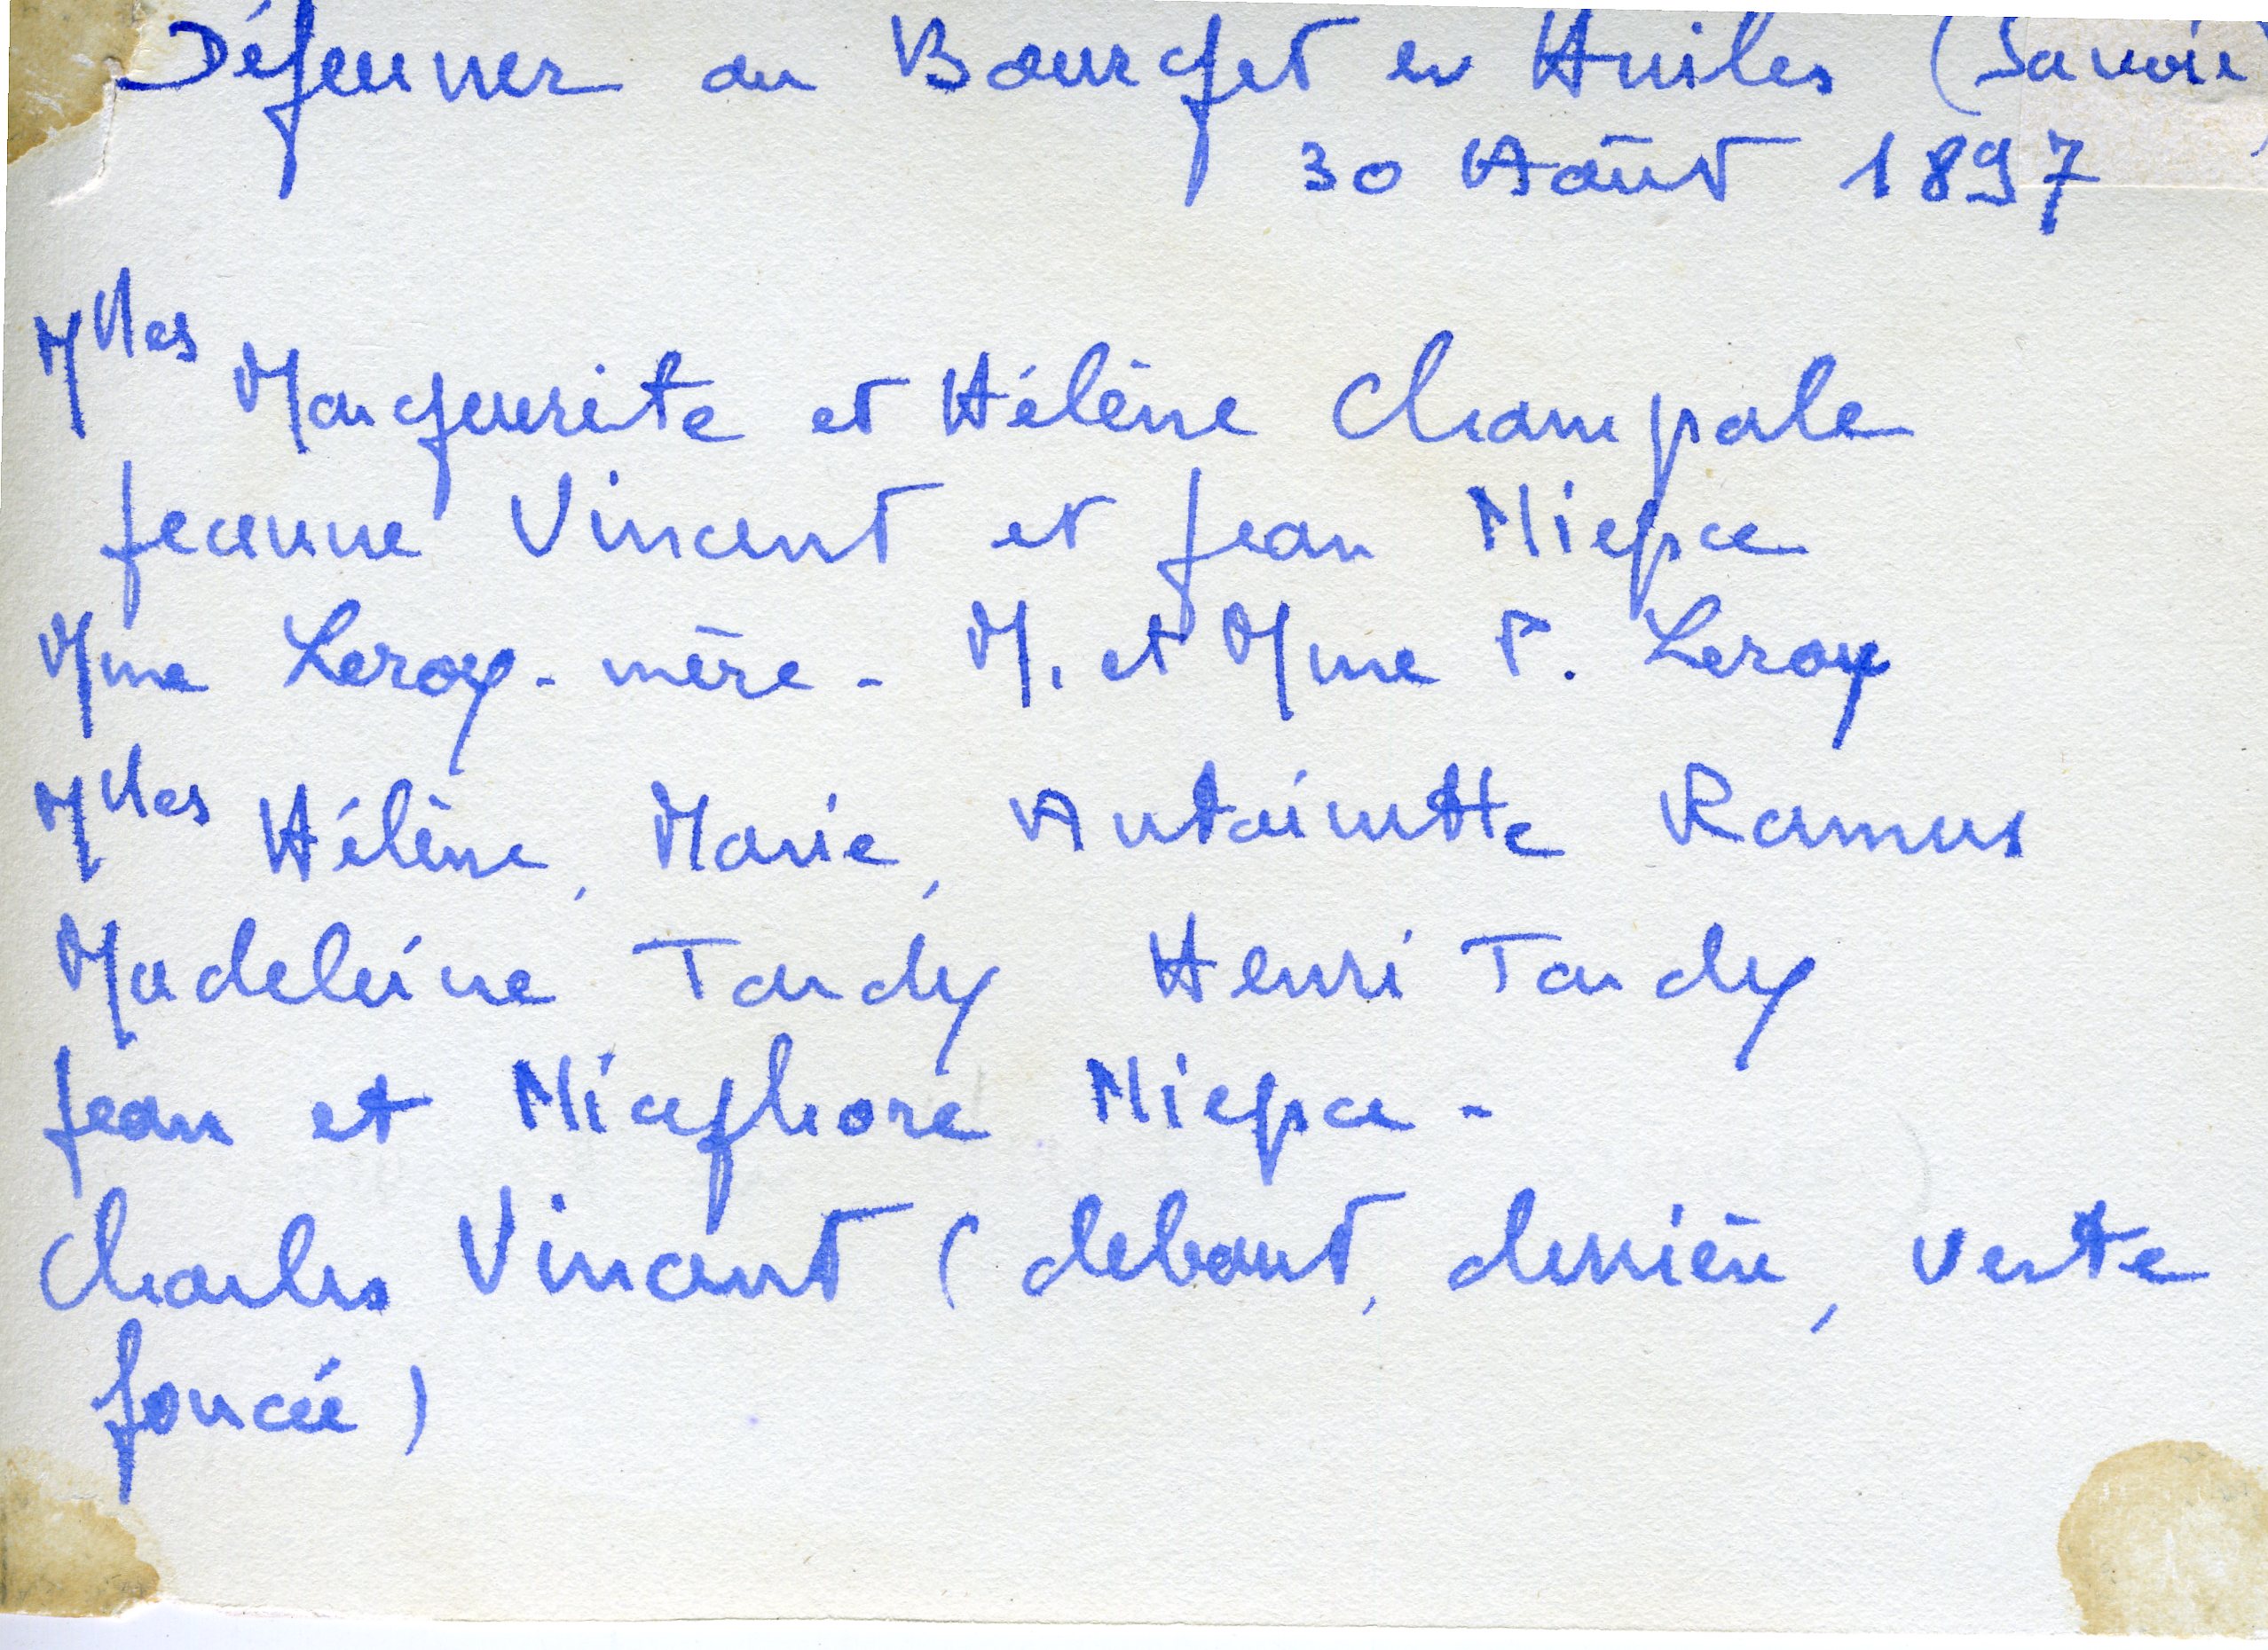 Déjeuner au Bourget en Huiles (Savoie)
30 Août 1897
Mlles Marguerite et Hélène Champale
Jeanne Vincent et Jean Niepce
Mme Leroy-mère - M. et Mme P. Leroy
Mlles Hélène, Marie, Antoinette Ramus
Madeleine Tardy Henri Tardy
Jean et Nicéphore Niepce -
Charles Vincent (debout, derrière, veste
foncée)